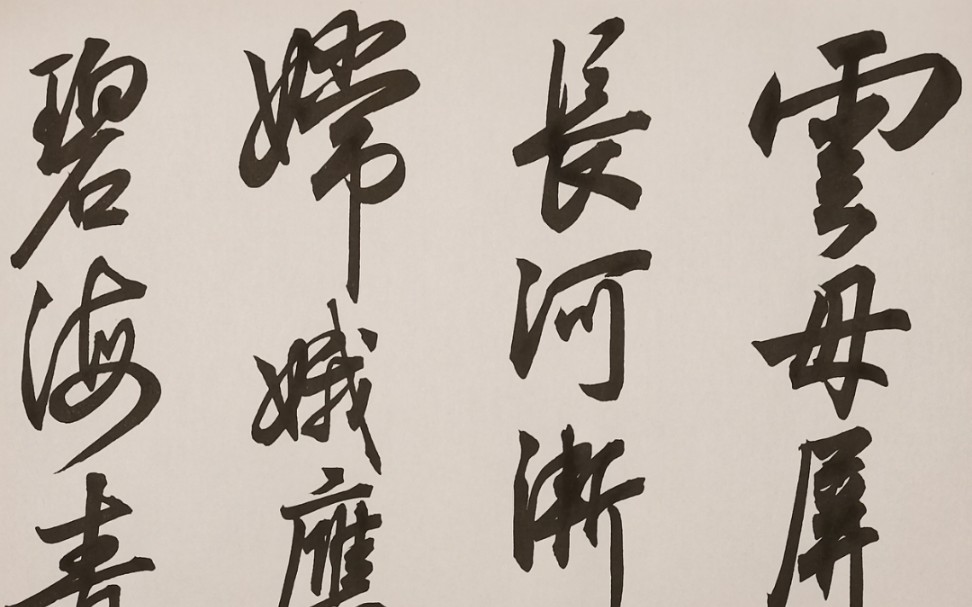 雲母屏
長河漸
嫦娥應
碧海青